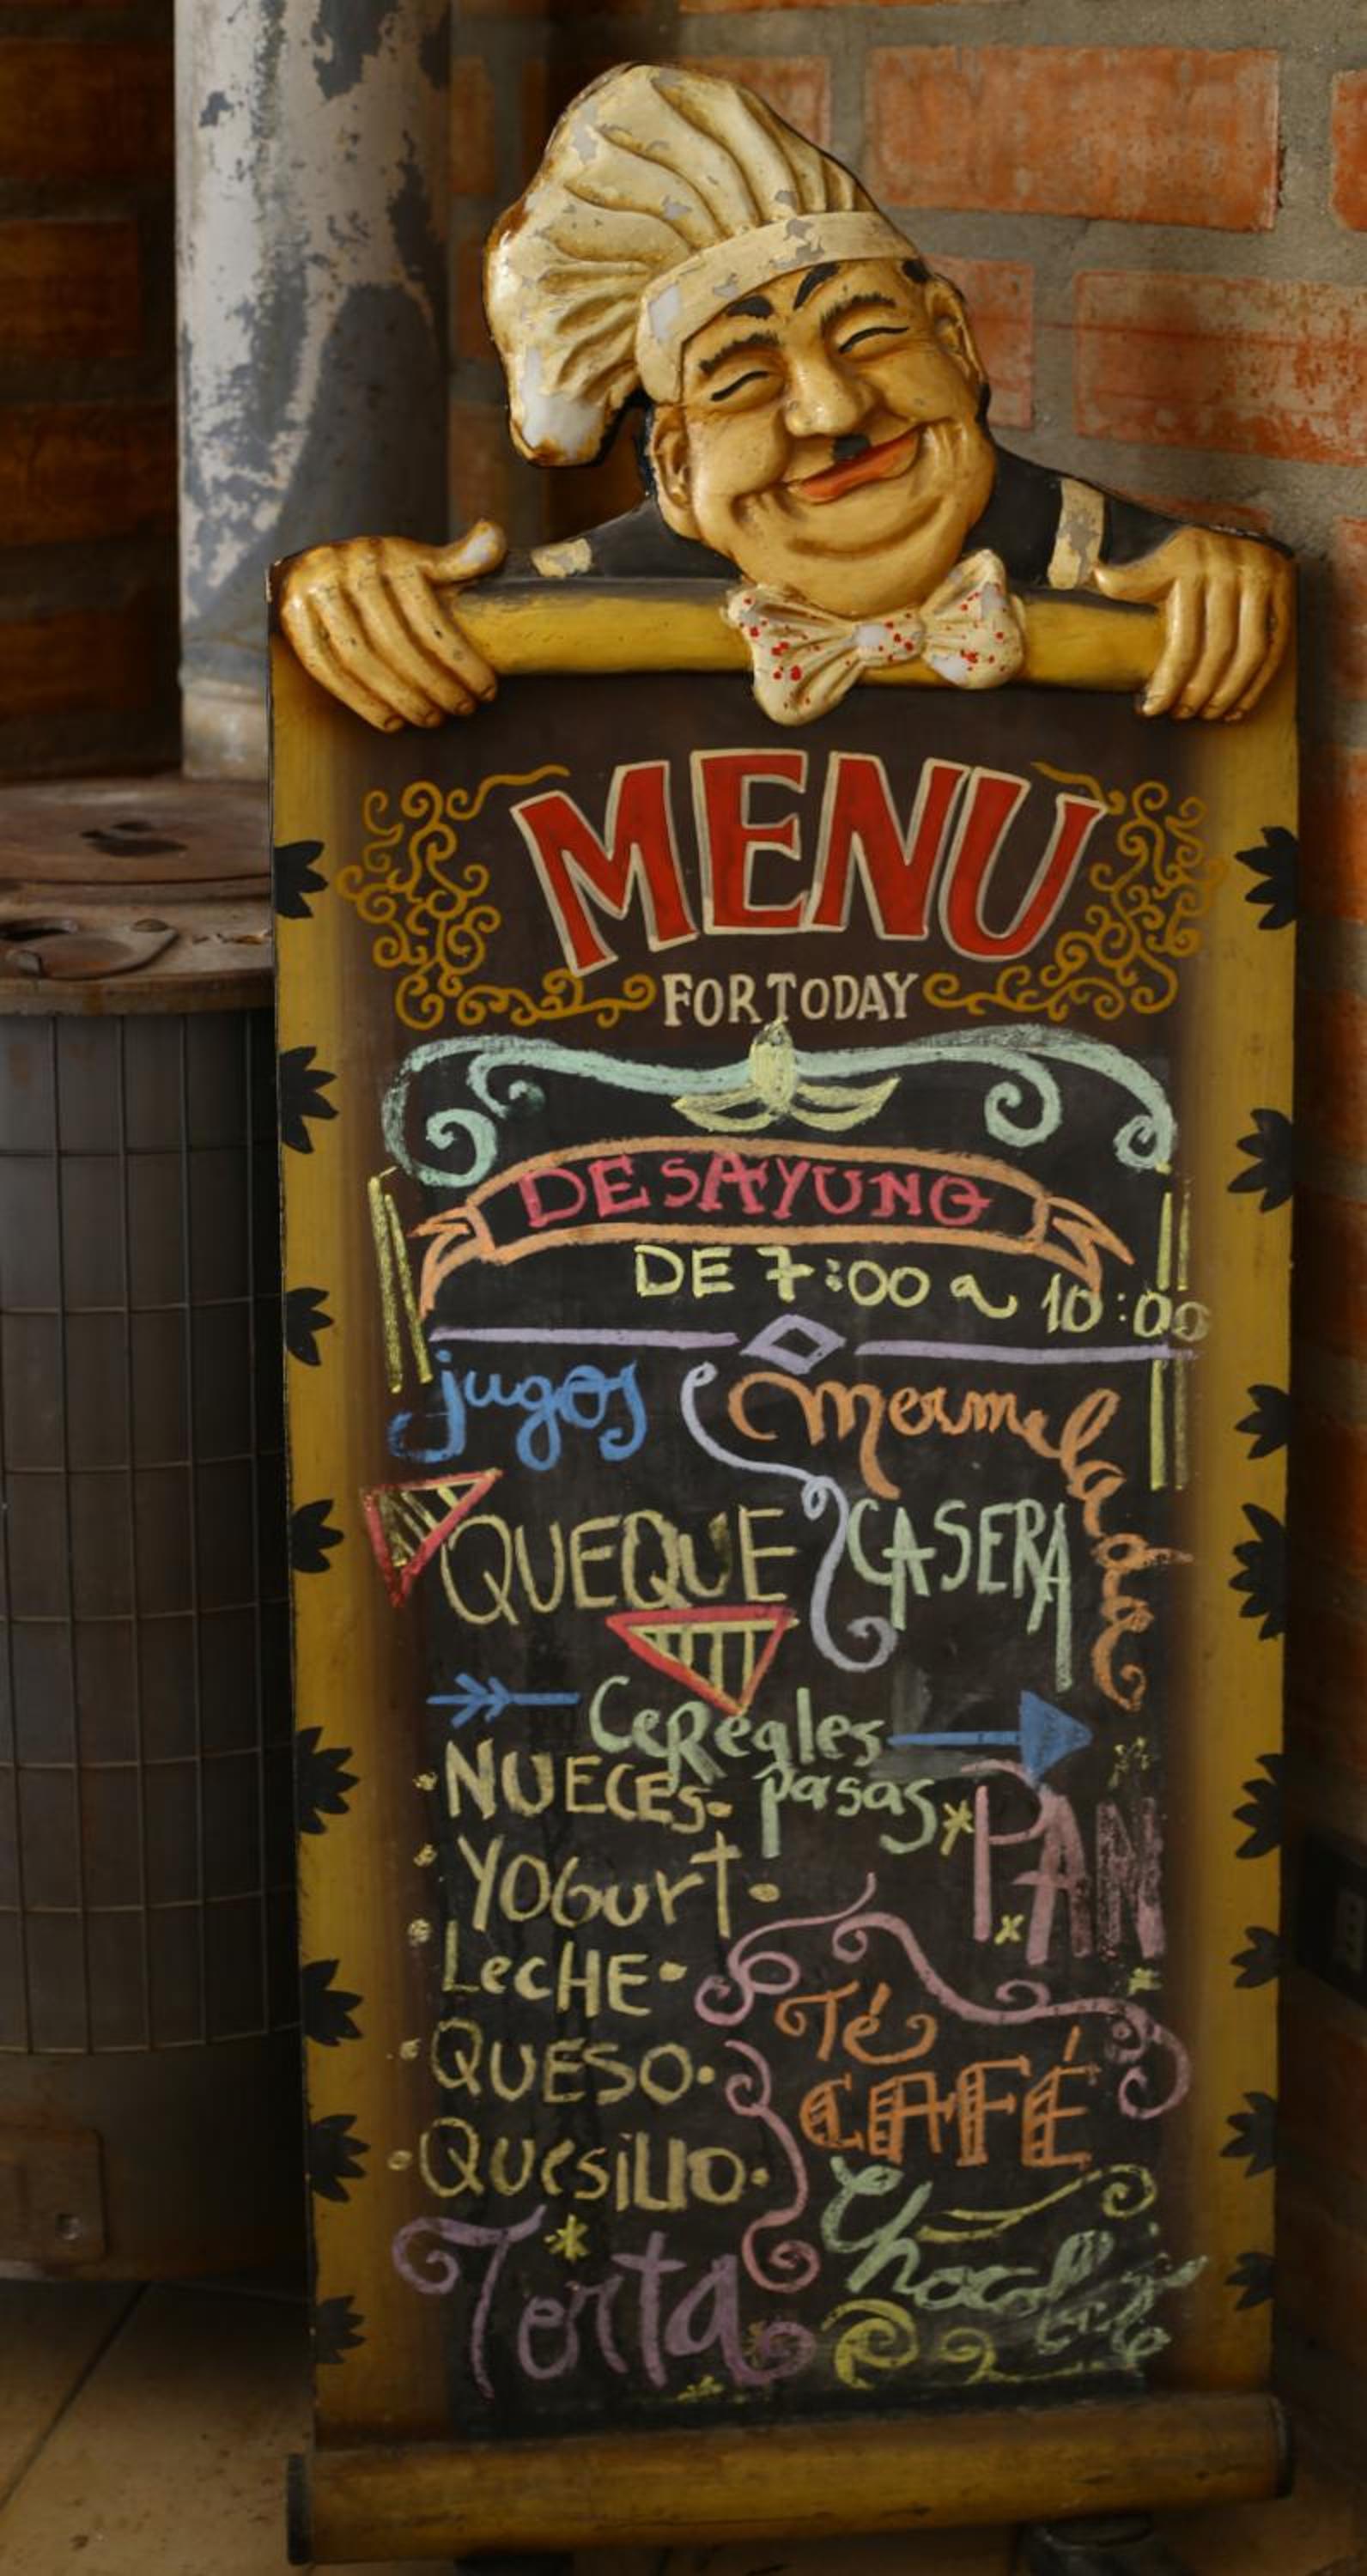 MENU
FOR TODAY
DESAYUNO
DE 7:00 a 10:00
jugos
mermelada
QUEQUE
CASERA
Cereales
NUECES. pasas
PAN
YOGurt.
LecHE.
Té
QUESO.
CAFÉ
QUesiLLO.
Chocolate
Torta